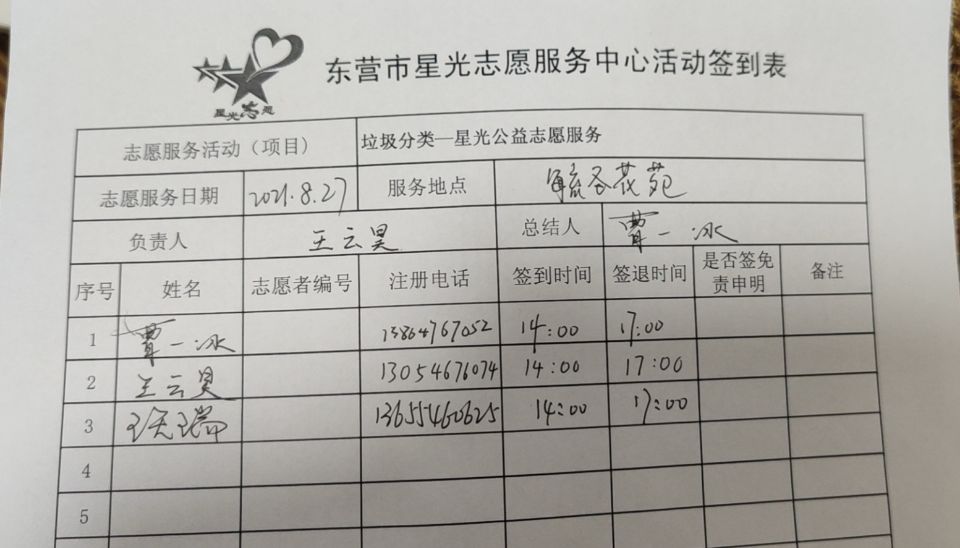 东营市星光志愿服务中心活动签到表
星光志愿
志愿服务活动（项目） 垃圾分类—星光公益志愿服务
志愿服务日期 2021.8.27 服务地点 花苑
负责人 王云昊 总结人 贾一冰
序号 姓名 志愿者编号 注册电话 签到时间 签退时间 是否签免责申明 备注
1 贾一冰 13864767052 14:00 17:00
2 王云昊 13054676074 14:00 17:00
3 13655460625 14:00 17:00
4
5